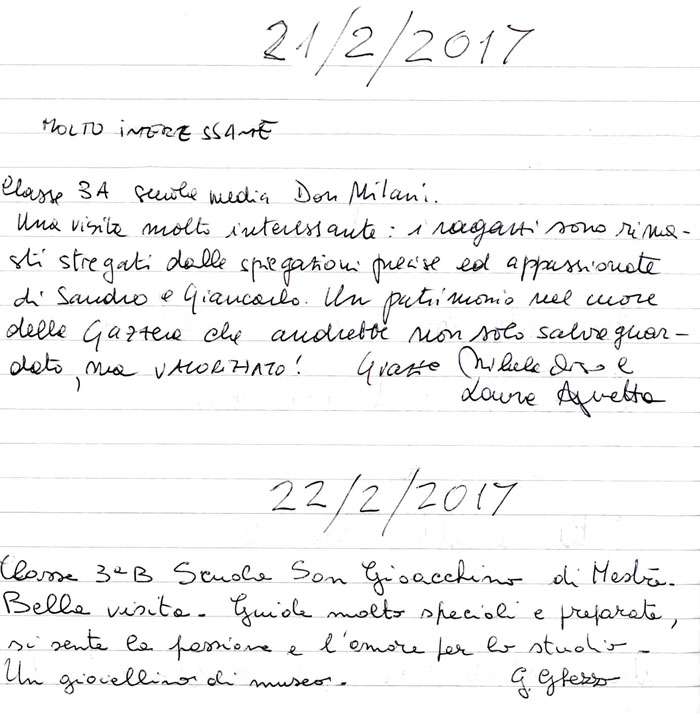 21/2/2017
MOLTO INTERESSANTE
Classe 3A scuola media Don Milani.
Una visita molto interessante: i ragazzi sono rima-
sti stregati dalle spiegazioni precise ed appassionate
di Sandro e Giancarlo. Un patrimonio nel cuore
della Gazzera che andrebbe non solo salvaguar-
dato, ma VALORIZZATO! Grazie
Laura
22/2/2017
Classe 3ªB Scuola San Gioacchino di Mestre.
Bella visita. Guide molto speciali e preparate,
si sente la passione e l'amore per lo studio.
Un gioiellino di museo. G. Ghezzo